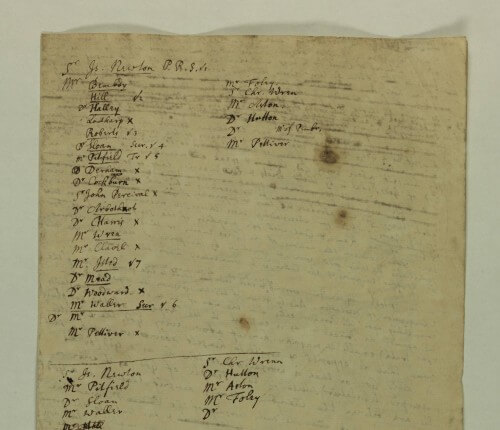 Sr Is. Newton P.R.S.
Mr
Hill v2
Dr Halley
x
Roberts v3
Dr Sloan Secr. v4
Mr Pitfield Tr v5
D Derham x
Dr Cockburn x
Sr John Percival x
Dr
Dr Harris x
Mr Wren
Mr x
Mr Isted v7
Dr Mead
Dr Woodward x
Mr Waller Secr v6
Dr Mr
Mr Pettiver x
Mr Foley
Sr Chr Wren
Mr Aston
Dr Hutton
Dr
Mr Pettiver
Sr Is. Newton
Mr Pitfield
Dr Sloan
Mr Waller
Mr Hill
Sr Chr Wren
Dr Hutton
Mr Aston
Mr Foley
Dr